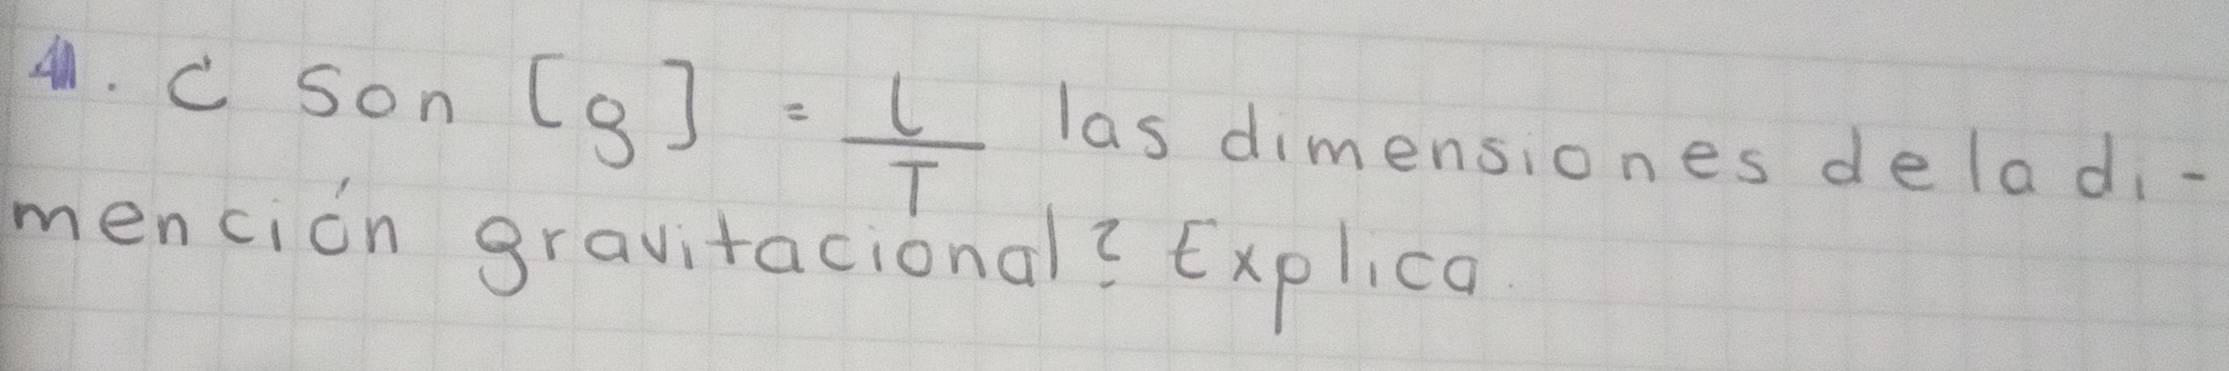 1. ¿ Son [g] = L/T las dimensiones de la di-
mención gravitacional? Explica.